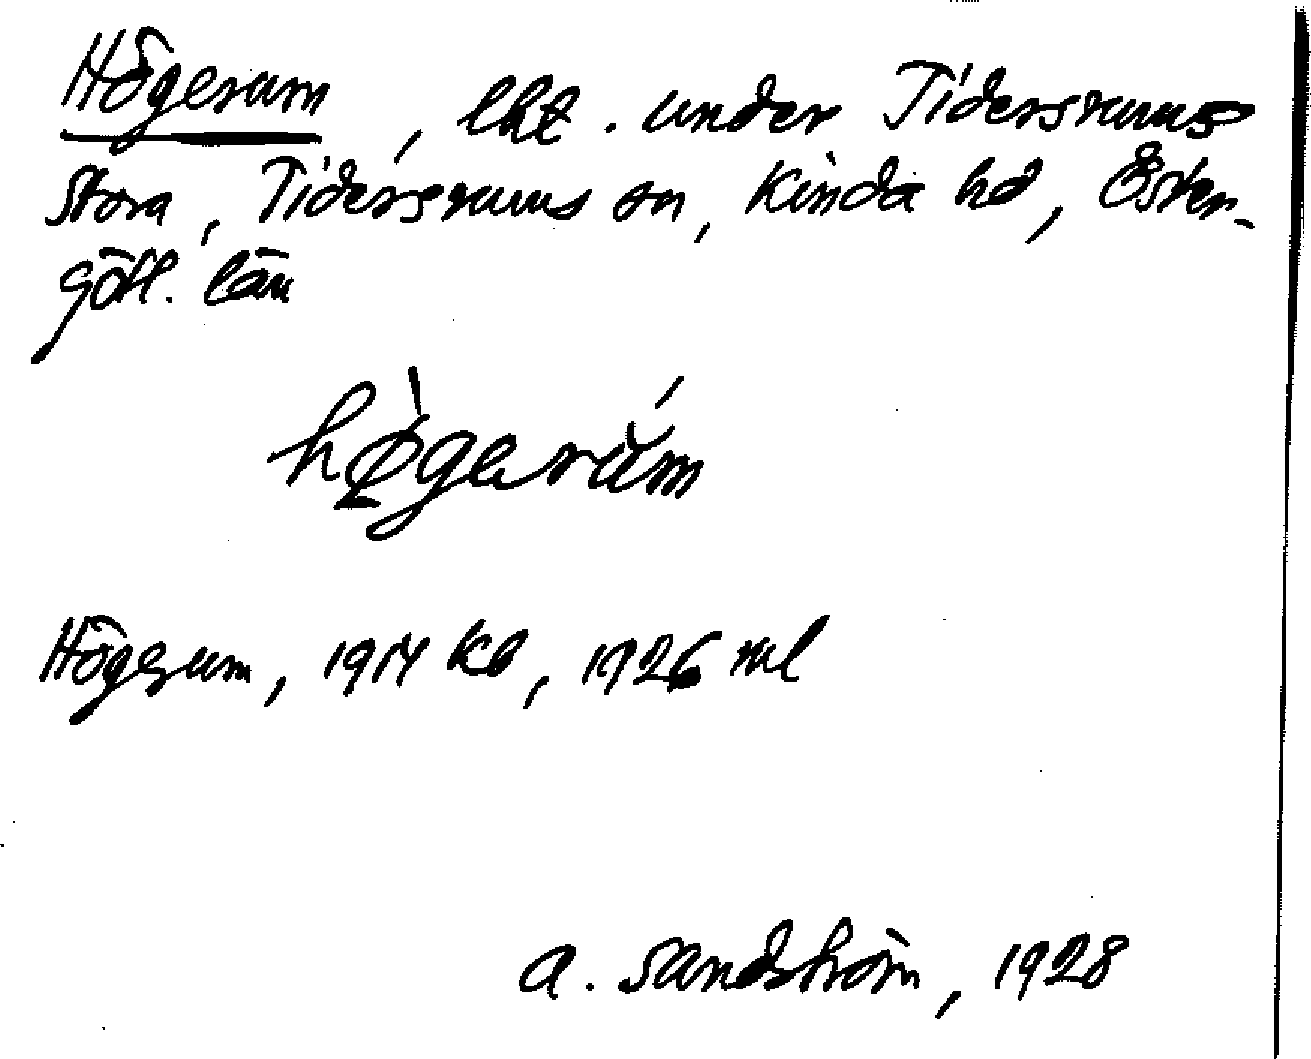 Högerum, lht. under Tidersrums
Stora, Tidersrums sn, Kinda hd, Öster-
götl. län
hø̀gerúm
Högerum, 1914 kb, 1926 ml
A. Sandström, 1928